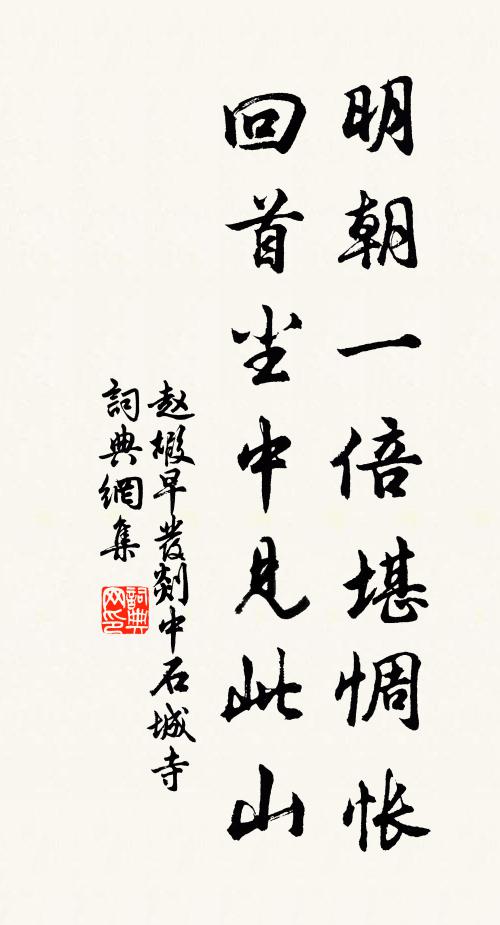 明朝一倍堪惆怅
回首尘中见此山
赵嘏早發剡中石城寺
詞典網集
詞典网印